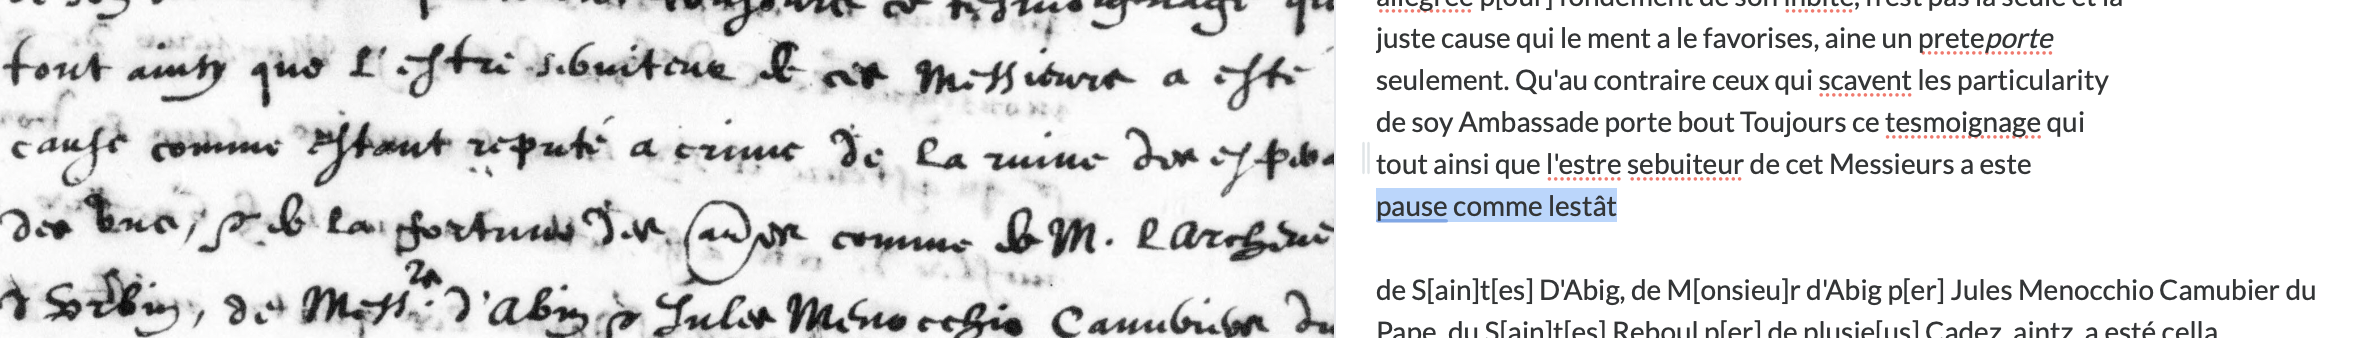 tout ainsy que l'estre serviteur de ces Messieurs a esté
cause comme estant reputé a crime de la ruine des
des uns, et de la fortune des autres comme de M. l'Archeve
d'Urbin, de Mess.rs d'Abin et Jules Menocchio Camerier du
juste cause qui le ment a le favorises, aine un preteporte
seulement. Qu'au contraire ceux qui scavent les particularity
de soy Ambassade porte bout Toujours ce tesmoignage qui
tout ainsi que l'estre sebuiteur de cet Messieurs a este
pause comme lestât
de S[ain]t[es] D'Abig, de M[onsieu]r d'Abig p[er] Jules Menocchio Camubier du
Pape, du S[ain]t[es] Reboul p[er] de plusie[us] Cadez, aintz, a esté cella